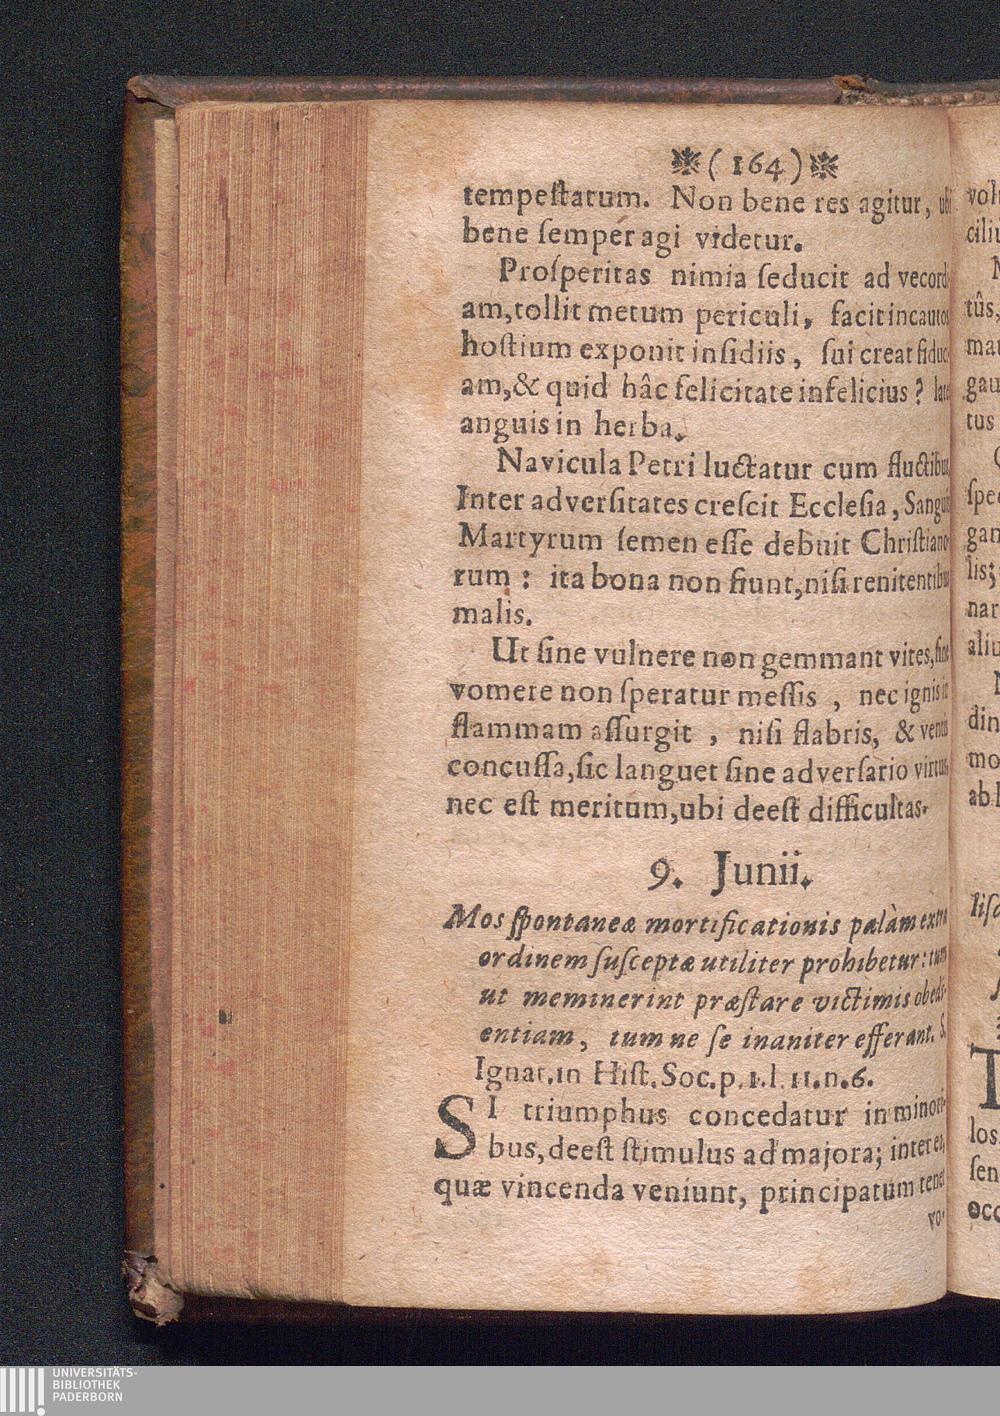 (164)
tempeſtatum. Non bene res agitur, ubi
bene ſemper agi videtur.
Proſperitas nimia ſeducit ad vecord
am, tollit metum periculi, facit incautos
hoſtium exponit inſidiis, ſui creat fiduc
am, & quid hâc felicitate infelicius? late
anguis in herba.
Navicula Petri luctatur cum fluctibus
Inter adverſitates creſcit Eccleſia, Sangui
Martyrum ſemen eſſe debuit Chriſtiano
rum: ita bona non fiunt, niſi renitentibus
malis.
Ut ſine vulnere non gemmant vites, ſine
vomere non ſperatur meſſis, nec ignis in
flammam aſſurgit, niſi flabris, & ventis
concuſſa, ſic languet ſine adverſario virtus,
nec eſt meritum, ubi deeſt difficultas.
9. Junii.
Mos ſpontaneæ mortificationis palàm extra
ordinem ſuſceptæ utiliter prohibetur: tum
ut meminerint præſtare victimis obedi-
entiam, tum ne ſe inaniter efferant. S.
Ignat. in Hiſt. Soc. p. 1. l. 11. n. 6.
SI triumphus concedatur in minori-
bus, deeſt ſtimulus ad majora; inter ea,
quæ vincenda veniunt, principatum tenet
vo-
volu
ciliu
tûs,
mau
gau
tus
ſpec
gan
lis;
nar
aliu
din
mo
ab l
liſc
T
los
ſen
occ
UNIVERSITÄTS-
BIBLIOTHEK
PADERBORN